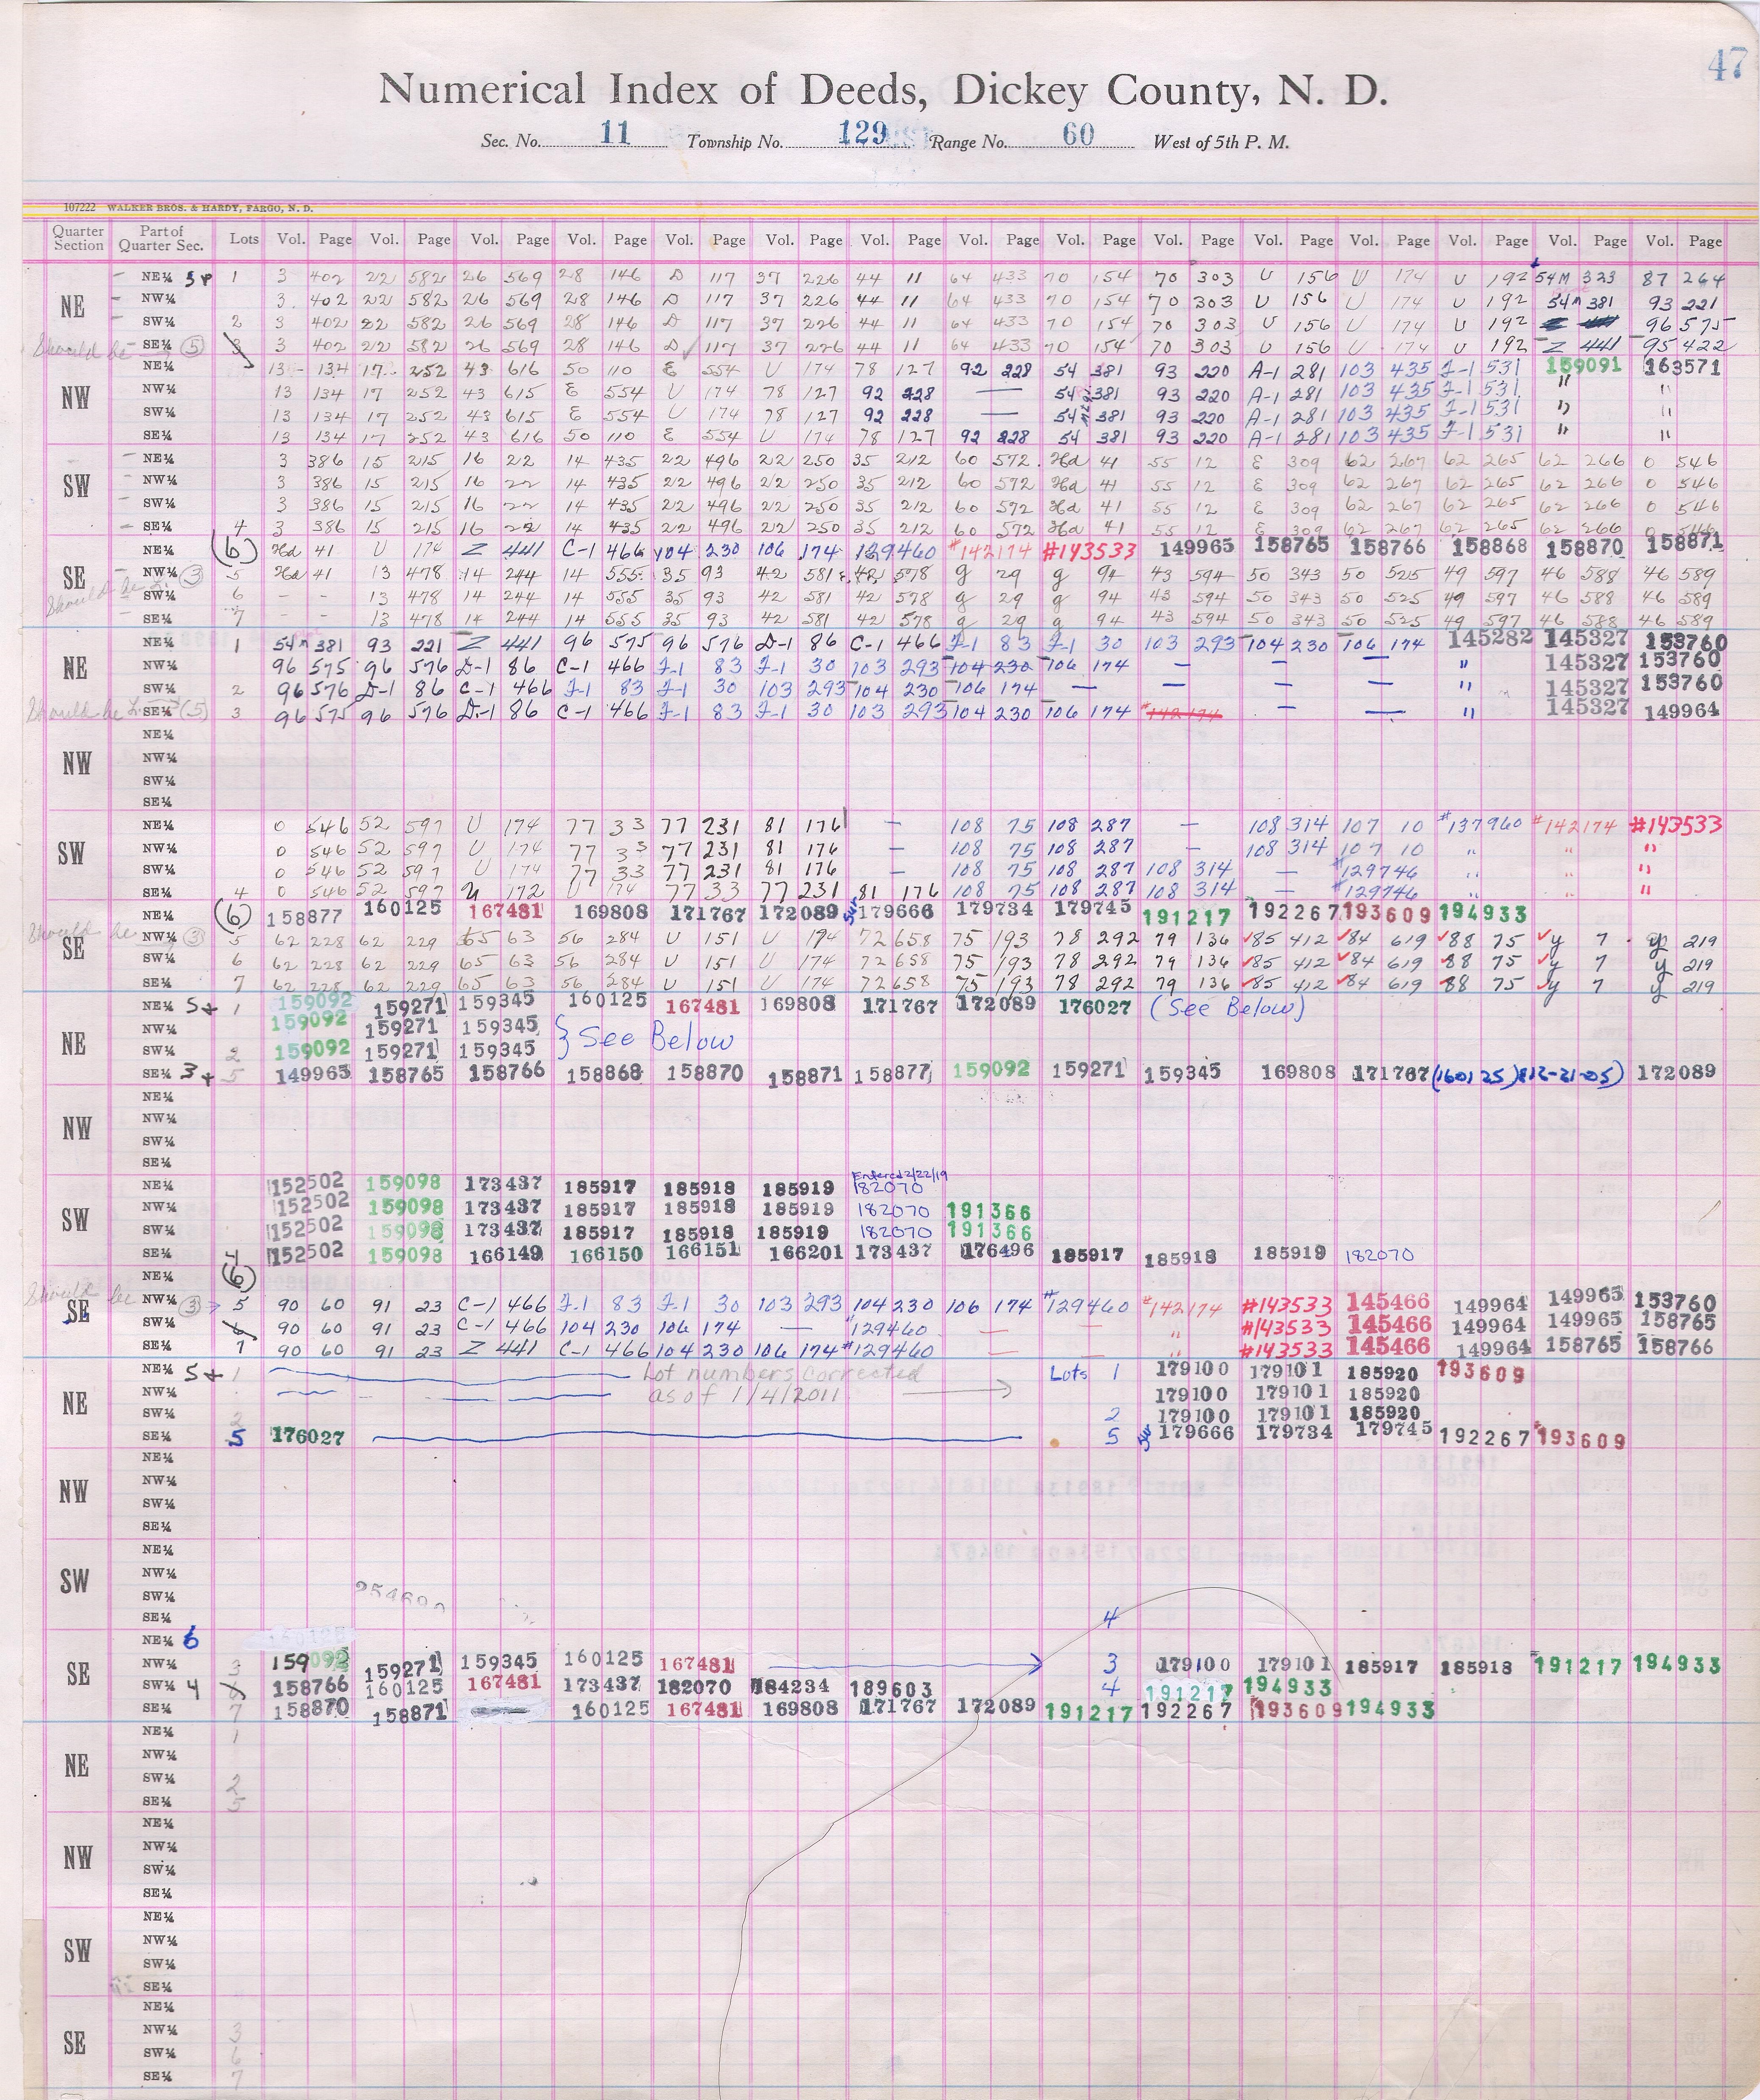 47
Numerical Index of Deeds, Dickey County, N. D.
Sec. No. 11 Township No. 129 Range No. 60 West of 5th P. M.
107222 WALKER BROS. & HARDY, FARGO, N. D.
Quarter Section Part of Quarter Sec. Lots Vol. Page Vol. Page Vol. Page Vol. Page Vol. Page Vol. Page Vol. Page Vol. Page Vol. Page Vol. Page Vol. Page Vol. Page Vol. Page Vol. Page Vol. Page
NE¼ 1 3 402 22 582 26 569 28 146 D 117 37 226 44 11 64 433 70 154 70 303 U 156 U 174 U 192 54M 323 87 264
NE NW¼ 3 402 22 582 26 569 28 146 D 117 37 226 44 11 64 433 70 154 70 303 U 156 U 174 U 192 54M 381 93 221
SW¼ 2 3 402 22 582 26 569 28 146 D 117 37 226 44 11 64 433 70 154 70 303 U 156 U 174 U 192 96 575
Should be (5) SE¼ 3 3 402 22 582 26 569 28 146 D 117 37 226 44 11 64 433 70 154 70 303 U 156 U 174 U 192 Z 441 95 422
NE¼ 13 134 17 252 43 616 50 110 E 554 U 174 78 127 92 228 54 381 93 220 A-1 281 103 435 J-1 531 159091 163571
NW NW¼ 13 134 17 252 43 615 E 554 U 174 78 127 92 228 — 54 381 93 220 A-1 281 103 435 J-1 531 " "
SW¼ 13 134 17 252 43 615 E 554 U 174 78 127 92 228 — 54 381 93 220 A-1 281 103 435 J-1 531 " "
SE¼ 13 134 17 252 43 616 50 110 E 554 U 174 78 127 92 228 54 381 93 220 A-1 281 103 435 J-1 531 " "
NE¼ 3 386 15 215 16 22 14 435 22 496 22 250 35 212 60 572 Hd 41 55 12 E 309 62 267 62 265 62 266 O 546
SW NW¼ 3 386 15 215 16 22 14 435 22 496 22 250 35 212 60 572 Hd 41 55 12 E 309 62 267 62 265 62 266 O 546
SW¼ 3 386 15 215 16 22 14 435 22 496 22 250 35 212 60 572 Hd 41 55 12 E 309 62 267 62 265 62 266 O 546
SE¼ 4 3 386 15 215 16 22 14 435 22 496 22 250 35 212 60 572 Hd 41 55 12 E 309 62 267 62 265 62 266 O 546
NE¼ (6) Hd 41 U 174 Z 441 C-1 466 104 230 106 174 129460 #142174 #143533 149965 158765 158766 158868 158870 158871
SE NW¼ (3) 5 Hd 41 13 478 14 244 14 555 35 93 42 581 42 578 g 29 g 94 43 594 50 343 50 525 49 597 46 588 46 589
Should be SW¼ 6 - - 13 478 14 244 14 555 35 93 42 581 42 578 g 29 g 94 43 594 50 343 50 525 49 597 46 588 46 589
SE¼ 7 - - 13 478 14 244 14 555 35 93 42 581 42 578 g 29 g 94 43 594 50 343 50 525 49 597 46 588 46 589
NE¼ 1 54M 381 93 221 Z 441 96 575 96 576 D-1 86 C-1 466 J-1 83 J-1 30 103 293 104 230 106 174 145282 145327 153760
NE NW¼ 96 575 96 576 D-1 86 C-1 466 J-1 83 J-1 30 103 293 104 230 106 174 — — — " 145327 153760
SW¼ 2 96 576 D-1 86 C-1 466 J-1 83 J-1 30 103 293 104 230 106 174 — — — — " 145327 153760
Should be SE¼ (5) 3 96 575 96 576 D-1 86 C-1 466 J-1 83 J-1 30 103 293 104 230 106 174 #142174 — — " 145327 149964
NE¼
NW NW¼
SW¼
SE¼
NE¼ O 546 52 597 U 174 77 33 77 231 81 176 — 108 75 108 287 — 108 314 107 10 #137960 #142174 #143533
SW NW¼ O 546 52 597 U 174 77 33 77 231 81 176 — 108 75 108 287 — 108 314 107 10 " " "
SW¼ O 546 52 597 U 174 77 33 77 231 81 176 — 108 75 108 287 108 314 — #129746 " " "
SE¼ 4 O 546 52 597 U 172 U 174 77 33 77 231 81 176 108 75 108 287 108 314 — #129746 " " "
NE¼ (6) 158877 160125 167481 169808 171767 172089 179666 179734 179745 191217 192267 193609 194933
Should be SE NW¼ (3) 5 62 228 62 229 65 63 56 284 U 151 U 174 72 658 75 193 78 292 79 136 85 412 84 619 88 75 y 7 y 219
SW¼ 6 62 228 62 229 65 63 56 284 U 151 U 174 72 658 75 193 78 292 79 136 85 412 84 619 88 75 y 7 y 219
SE¼ 7 62 228 62 229 65 63 56 284 U 151 U 174 72 658 75 193 78 292 79 136 85 412 84 619 88 75 y 7 y 219
NE¼ 1 159092 159271 159345 160125 167481 169808 171767 172089 176027 (See Below)
NE NW¼ 159092 159271 159345 } See Below
SW¼ 2 159092 159271 159345
SE¼ 5 149965 158765 158766 158868 158870 158871 158877 159092 159271 159345 169808 171767 (160125) 172089
NE¼
NW NW¼
SW¼
SE¼
Entered 2/22/19
NE¼ 152502 159098 173437 185917 185918 185919 182070
SW NW¼ 152502 159098 173437 185917 185918 185919 182070 191366
SW¼ 152502 159098 173437 185917 185918 185919 182070 191366
SE¼ 152502 159098 166149 166150 166151 166201 173437 176496 185917 185918 185919 182070
NE¼ (6)
Should be SE NW¼ (3) 5 90 60 91 23 C-1 466 J-1 83 J-1 30 103 293 104 230 106 174 #129460 #142174 #143533 145466 149964 149965 153760
SW¼ 90 60 91 23 C-1 466 104 230 106 174 — #129460 — — " #143533 145466 149964 149965 158765
SE¼ 7 90 60 91 23 Z 441 C-1 466 104 230 106 174 #129460 — — " #143533 145466 149964 158765 158766
NE¼ 1 Lot numbers corrected Lots 1 179100 179101 185920 193609
NE NW¼ as of 1/4/2011 179100 179101 185920
SW¼ 2 2 179100 179101 185920
SE¼ 5 176027 5 179666 179734 179745 192267 193609
NE¼
NW NW¼
SW¼
SE¼
NE¼
SW NW¼
SW¼
SE¼ 4
NE¼ 6
SE NW¼ 3 159092 159271 159345 160125 167481 3 179100 179101 185917 185918 191217 194933
SW¼ 4 158766 160125 167481 173437 182070 184234 189603 4 191217 194933
SE¼ 7 158870 158871 160125 167481 169808 171767 172089 191217 192267 193609 194933
NE¼ 1
NE NW¼
SW¼ 2
SE¼ 5
NE¼
NW NW¼
SW¼
SE¼
NE¼
SW NW¼
SW¼
SE¼
NE¼
SE NW¼ 3
SW¼ 6
SE¼ 7